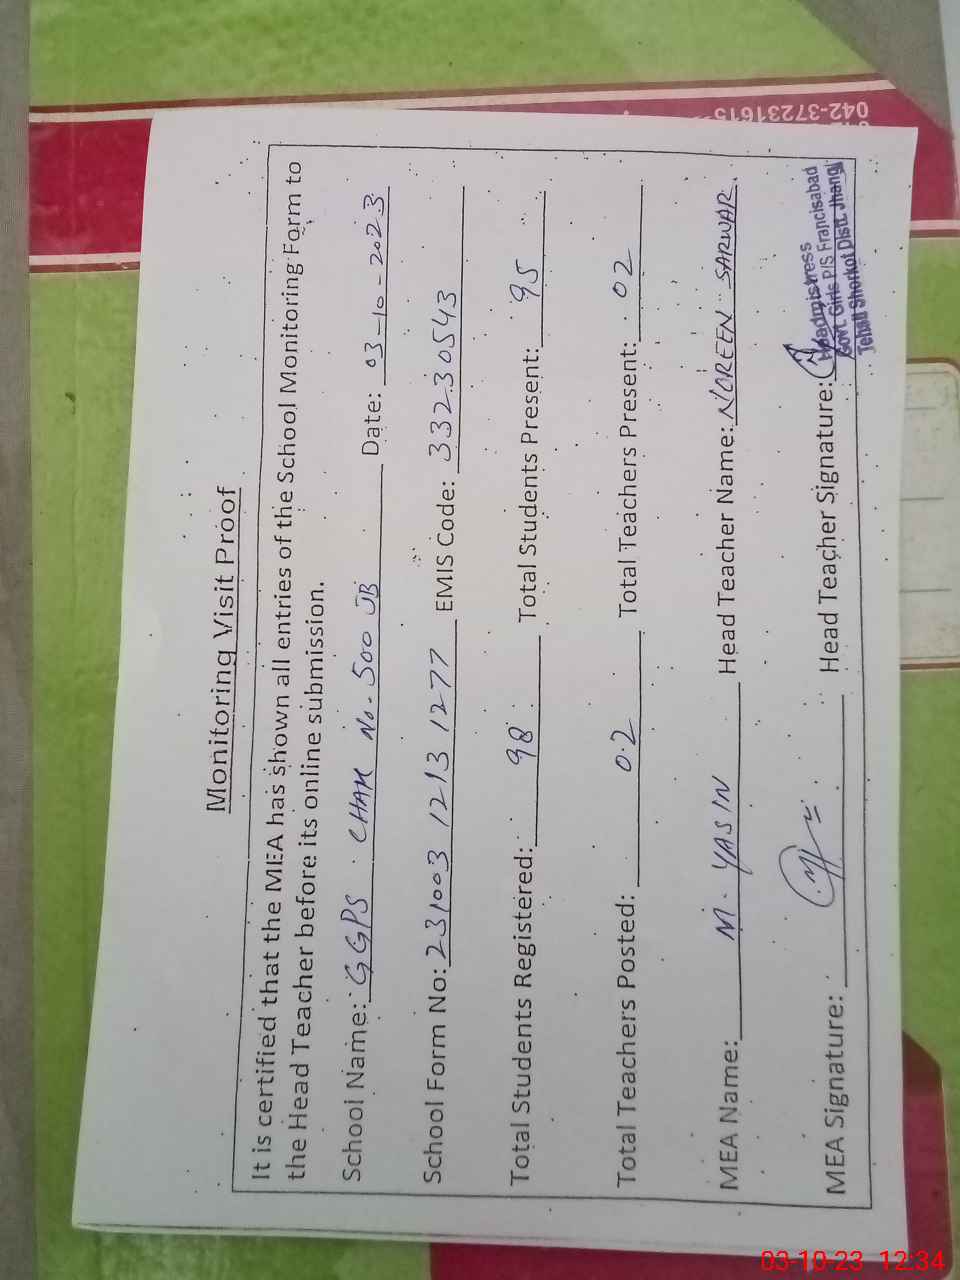 042-37231615
Monitoring Visit Proof
It is certified that the MEA has shown all entries of the School Monitoring Form to
the Head Teacher before its online submission.
School Name: GGPS CHAK No. 500 JB Date: 03-10-2023
School Form No: 231003 1213 1277 EMIS Code: 33230543
Total Students Registered: 98 Total Students Present: 95
Total Teachers Posted: 02 Total Teachers Present: 02
MEA Name: M. YASIN Head Teacher Name: NOREEN SARWAR
MEA Signature: Head Teacher Signature:
Headmistress
Govt. Girls P/S Francisabad
Tehsil Shorkot Distt. Jhang
03-10-23 12:34